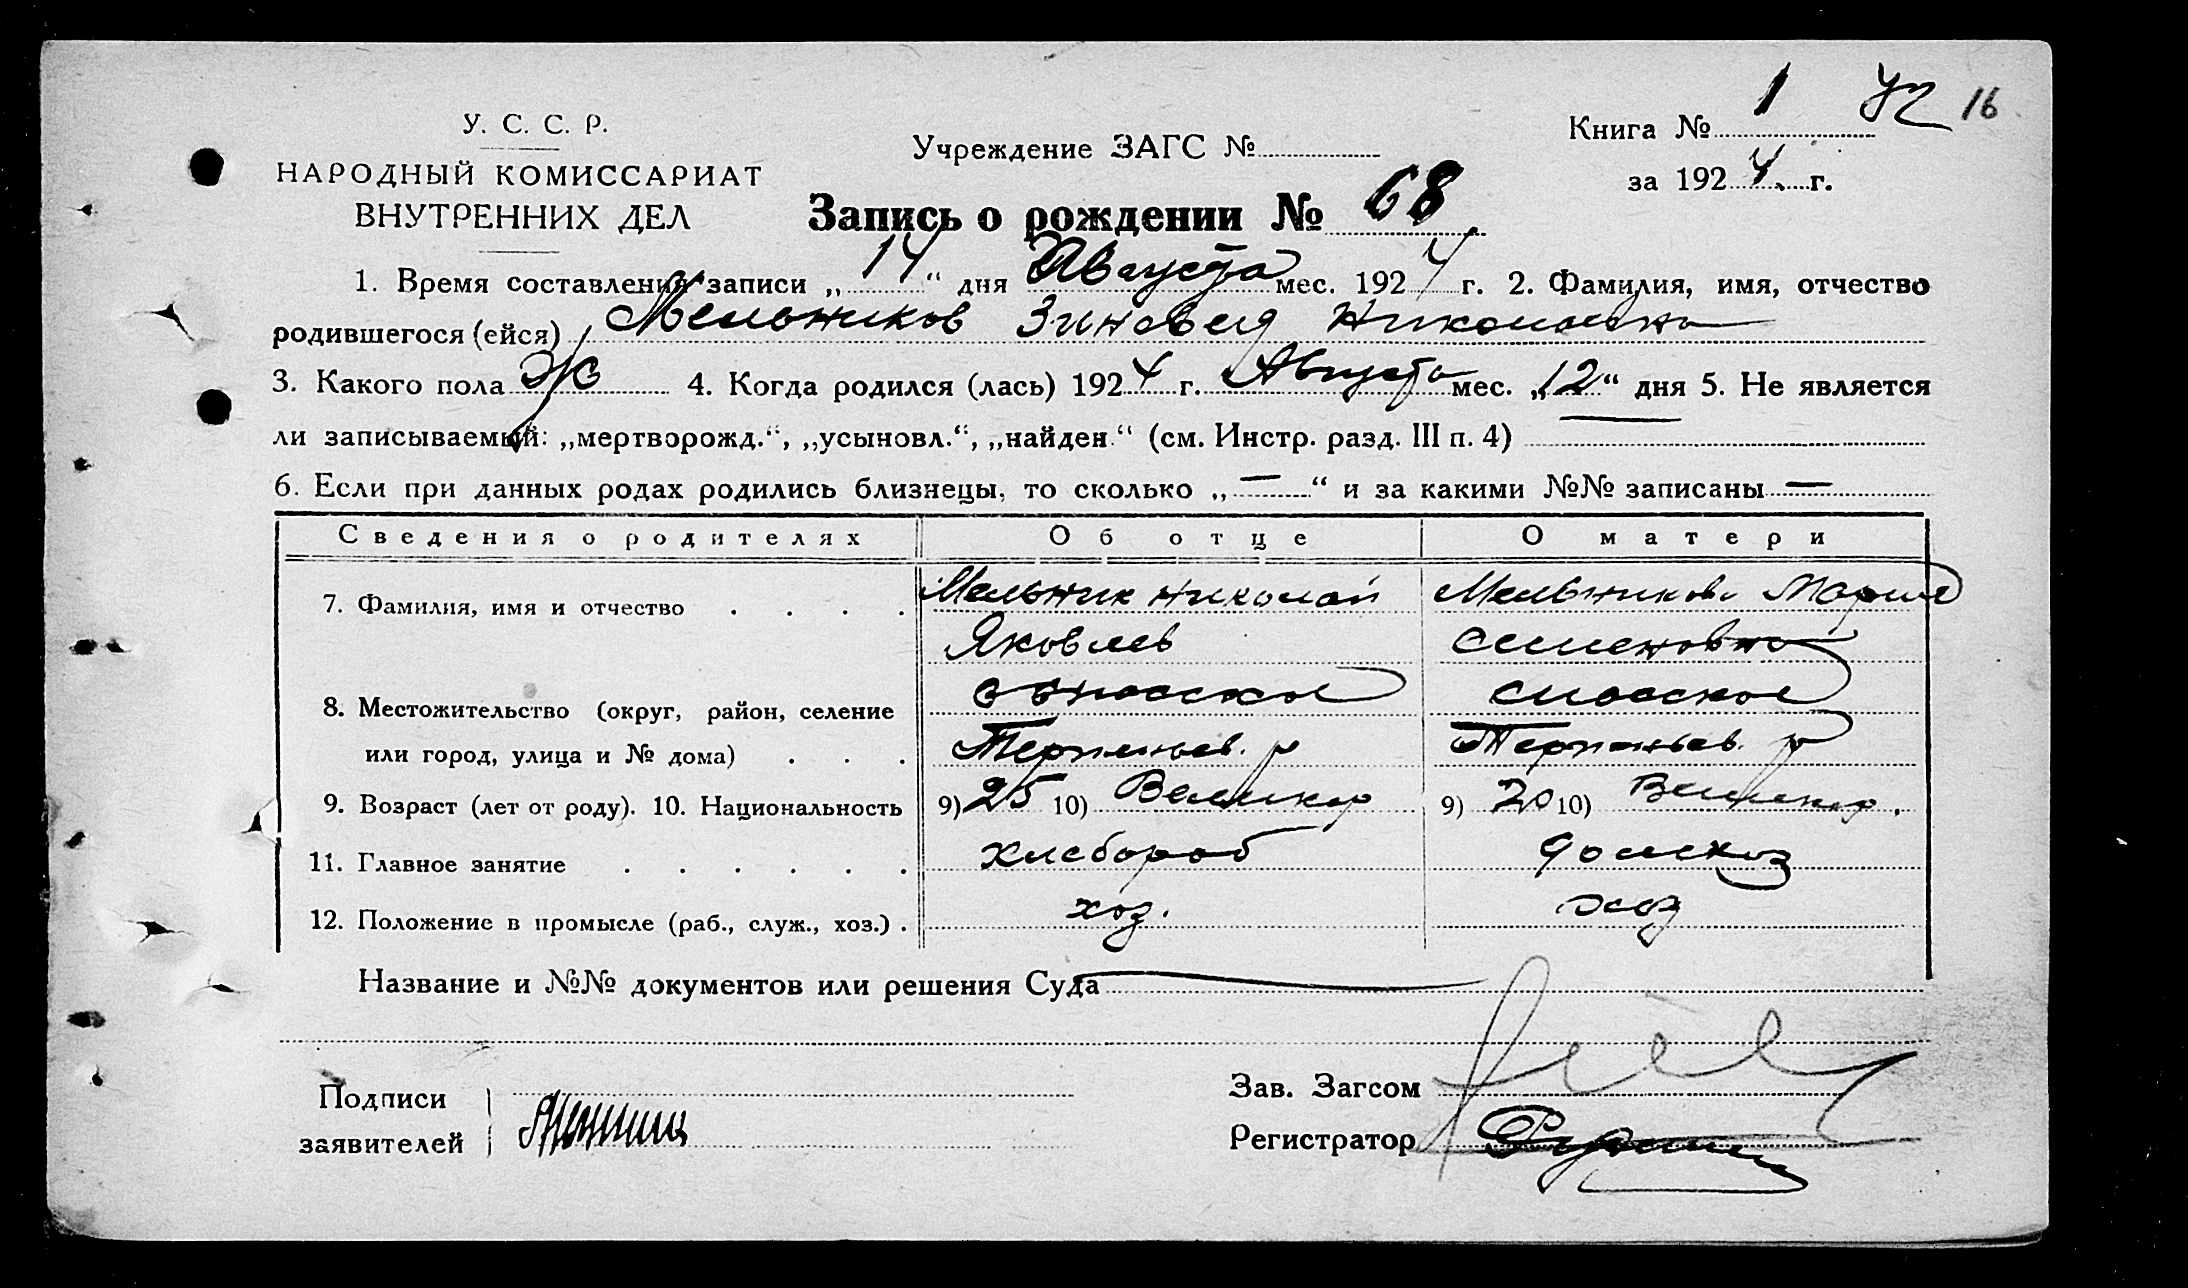 У. С. С. Р.
НАРОДНЫЙ КОМИССАРИАТ
ВНУТРЕННИХ ДЕЛ
Учреждение ЗАГС №
Книга № 1 42 16
за 1924 г.
Запись о рождении № 68
1. Время составления записи „14“ дня Августа мес. 1924 г. 2. Фамилия, имя, отчество
родившегося (ейся) Мельников Зиновея Николаевна
3. Какого пола Ж 4. Когда родился (лась) 1924 г. Августа мес. „12“ дня 5. Не является
ли записываемый: „мертворожд.“, „усыновл.“, „найден.“ (см. Инстр. разд. III п. 4) —
6. Если при данных родах родились близнецы, то сколько „—“ и за какими №№ записаны —
Сведения о родителях Об отце О матери
7. Фамилия, имя и отчество . . . . Мельник Николай Мельникова Мария
Яковлев Семеновна
8. Местожительство (округ, район, селение спасское
или город, улица и № дома) . . . Терпеньев. р Терпеньев. р
9. Возраст (лет от роду). 10. Национальность 9) 25 10) Великор 9) 20 10) Великор.
11. Главное занятие . . . . . . хлебороб домхоз
12. Положение в промысле (раб., служ., хоз.) . хоз. хоз
Название и №№ документов или решения Суда
Подписи
заявителей
Зав. Загсом
Регистратор